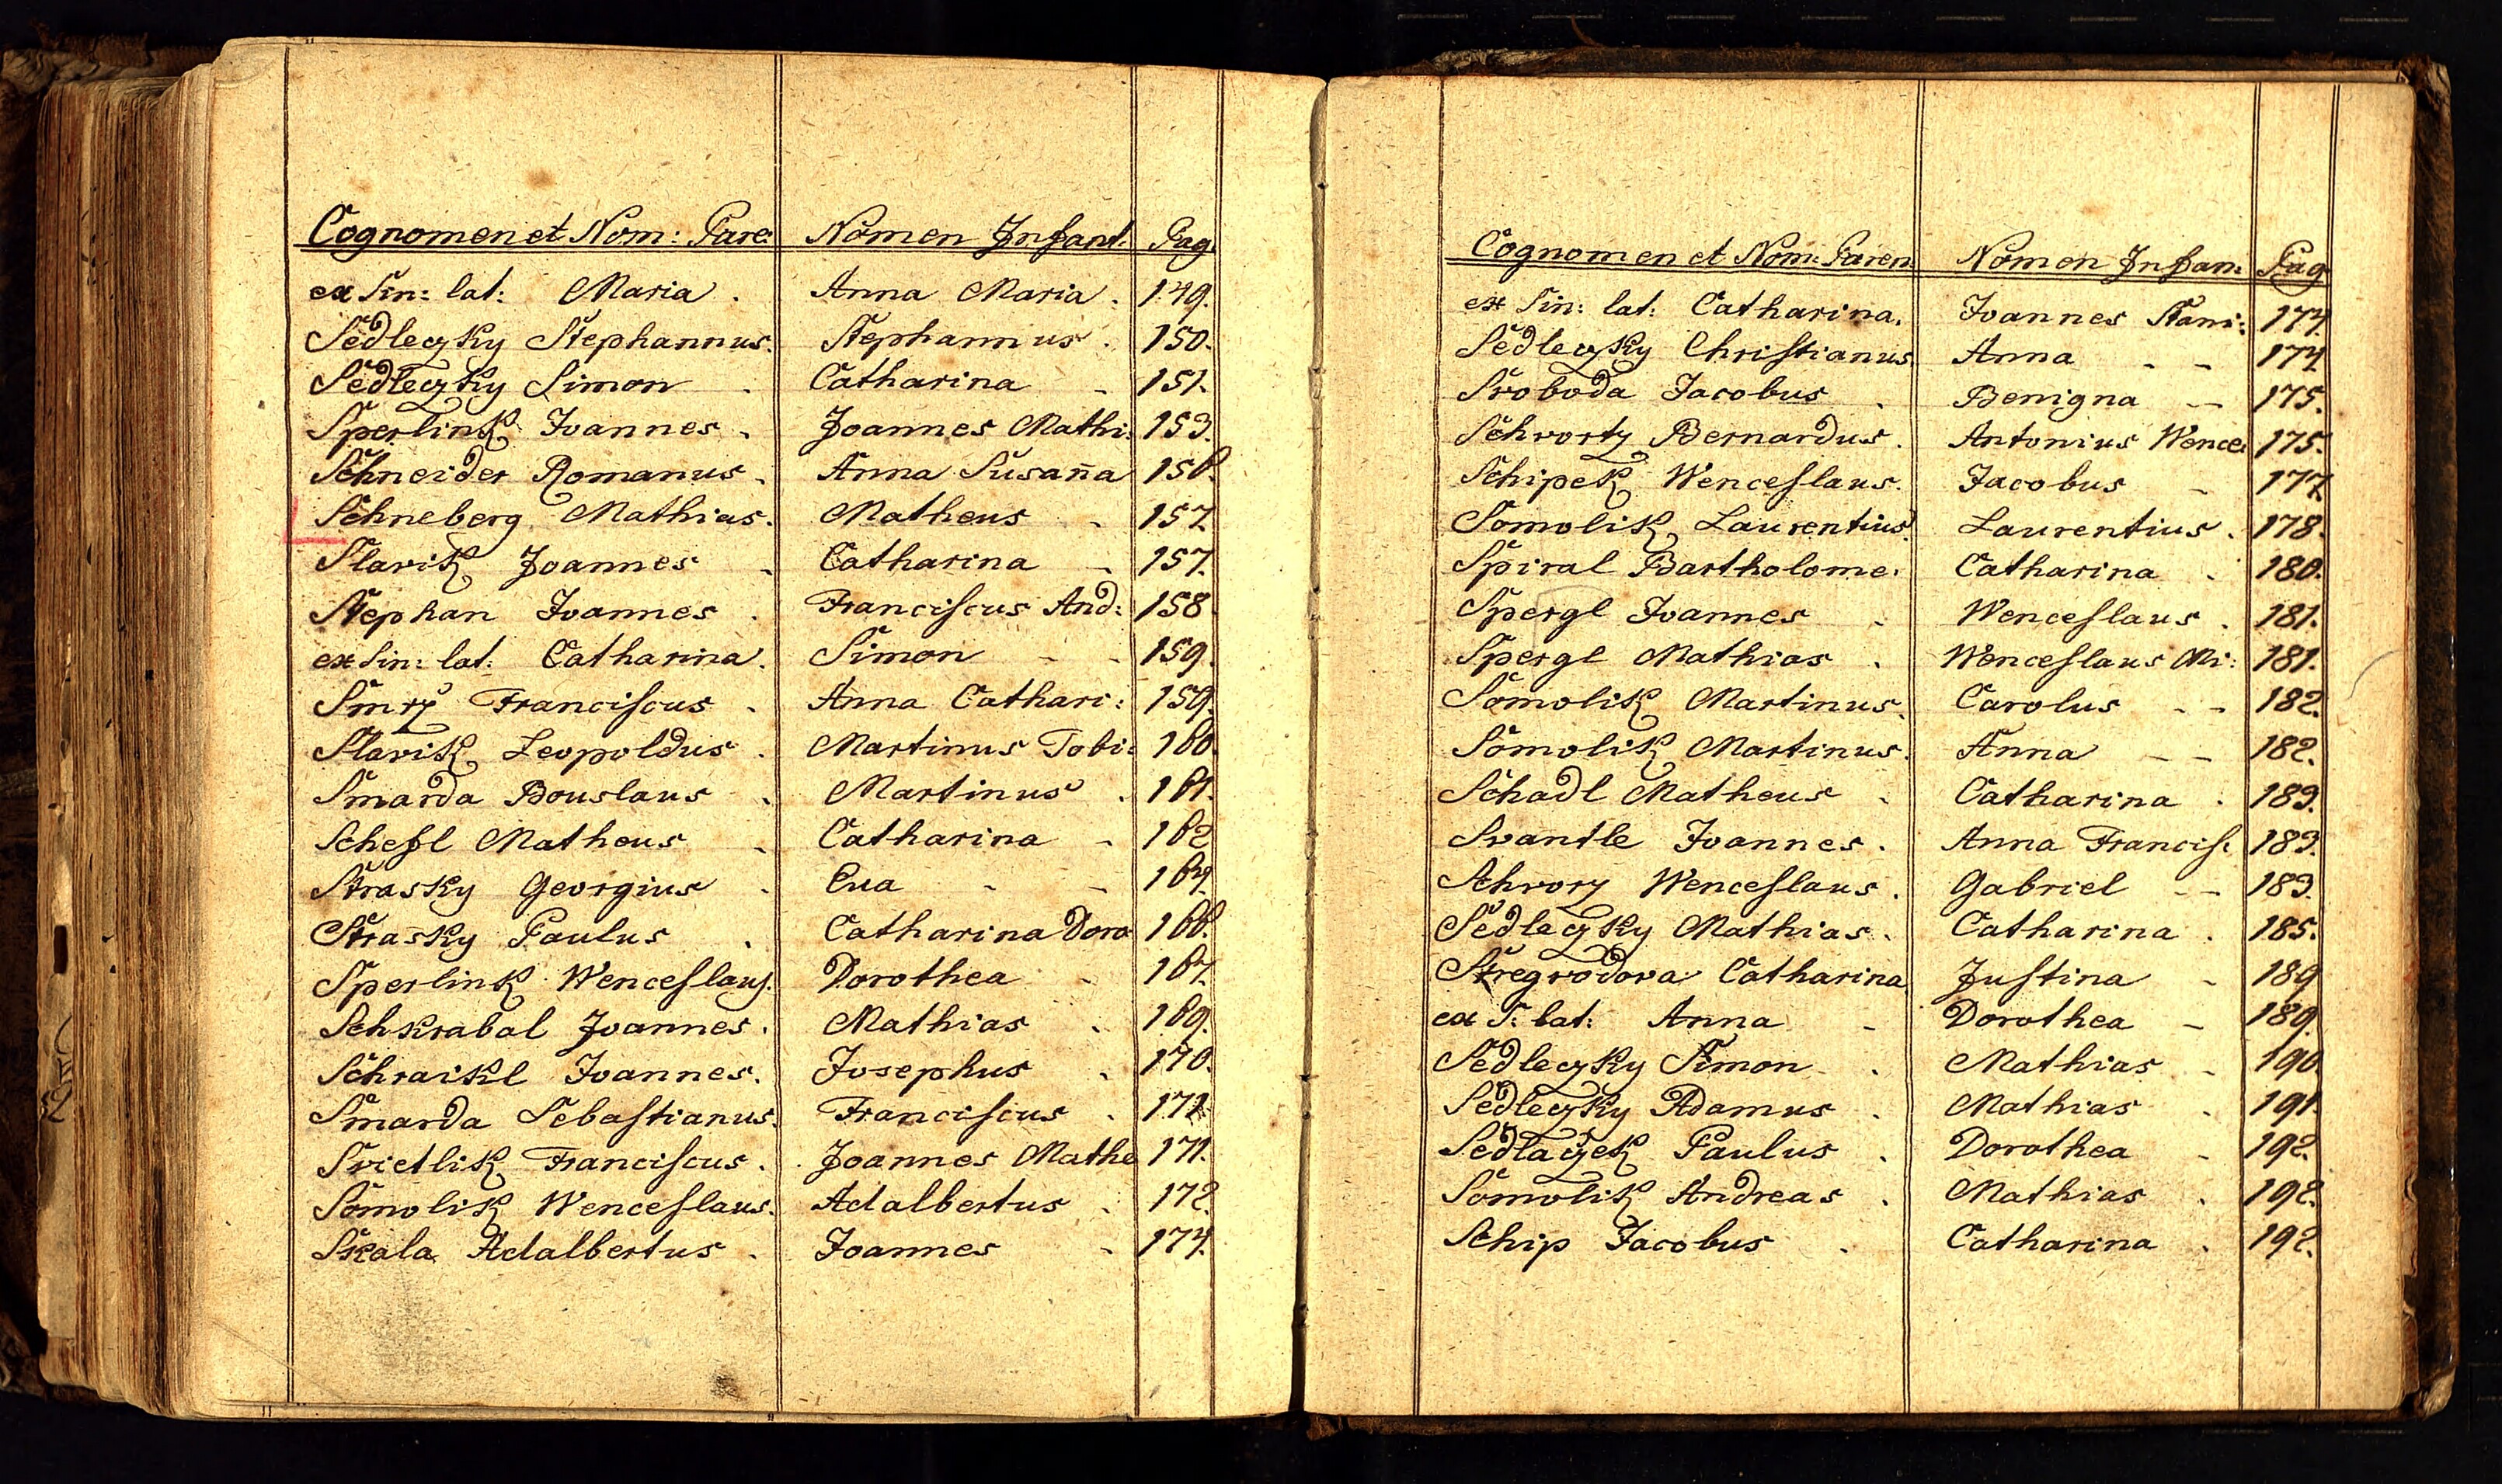 Cognomen et Nom: Pare: Nomen Infant: Pag
ex Sin: lat: Maria . Anna Maria . 149.
Sedleczky Stephannus. Stephannus . 150.
Sedleczky Simon . Catharina - 151.
Sperlink Joannes . Joannes Mathi: 153.
Schneider Romanus . Anna Susaña 156.
Schneberg Mathias. Matheus . 157.
Slavik Joannes . Catharina - 157.
Stephan Joannes . Franciscus And: 158
ex Sin: lat: Catharina. Simon - - 159.
Smrz Franciscus . Anna Cathari: 159.
Slavik Leopoldus . Martinus Tobi: 160.
Smarda Bouslaus . Martinus . 161.
Schefl Matheus . Catharina - 162
Strasky Georgius . Eua - - 164.
Strasky Paulus . Catharina Doro 166.
Sperlink Wenceslaus. Dorothea - 167.
Schkrabal Joannes . Mathias . 169.
Schraikl Joannes. Josephus . 170.
Smarda Sebastianus. Franciscus . 171.
Svietlik Franciscus . Joannes Mathe 171.
Somolik Wenceslaus. Adalbertus . 172.
Skala Adalbertus . Joannes - 174.
Cognomen et Nom: Paren: Nomen Infan: Pag
ex Sin: lat: Catharina. Joannes Stani: 174.
Sedleczky Christianus Anna - - 174
Svoboda Jacobus . Benigna - 175.
Schwortz Bernardus . Antonius Wence: 175.
Schipek Wenceslaus. Jacobus - 177
Somolik Laurentius. Laurentius . 178.
Spiral Bartholome. Catharina . 180.
Spergl Joannes . Wenceslaus . 181.
Spergl Mathias . Wenceslaus Mi: 181.
Somolik Martinus. Carolus - - 182.
Somolik Martinus. Anna - - 182.
Schadl Matheus . Catharina . 183.
Svantle Joannes . Anna Francis: 183.
Schvorz Wenceslaus . Gabriel - - 183.
Sedleczky Mathias . Catharina . 185.
Stregvodova Catharina Justina - 189
ex S: lat: Anna - Dorothea - 189.
Sedleczky Simon . Mathias - 190.
Sedleczky Adamus . Mathias . 191.
Sedlaczek Paulus . Dorothea - 192.
Somolik Andreas . Mathias . 192.
Schip Jacobus . Catharina . 192.